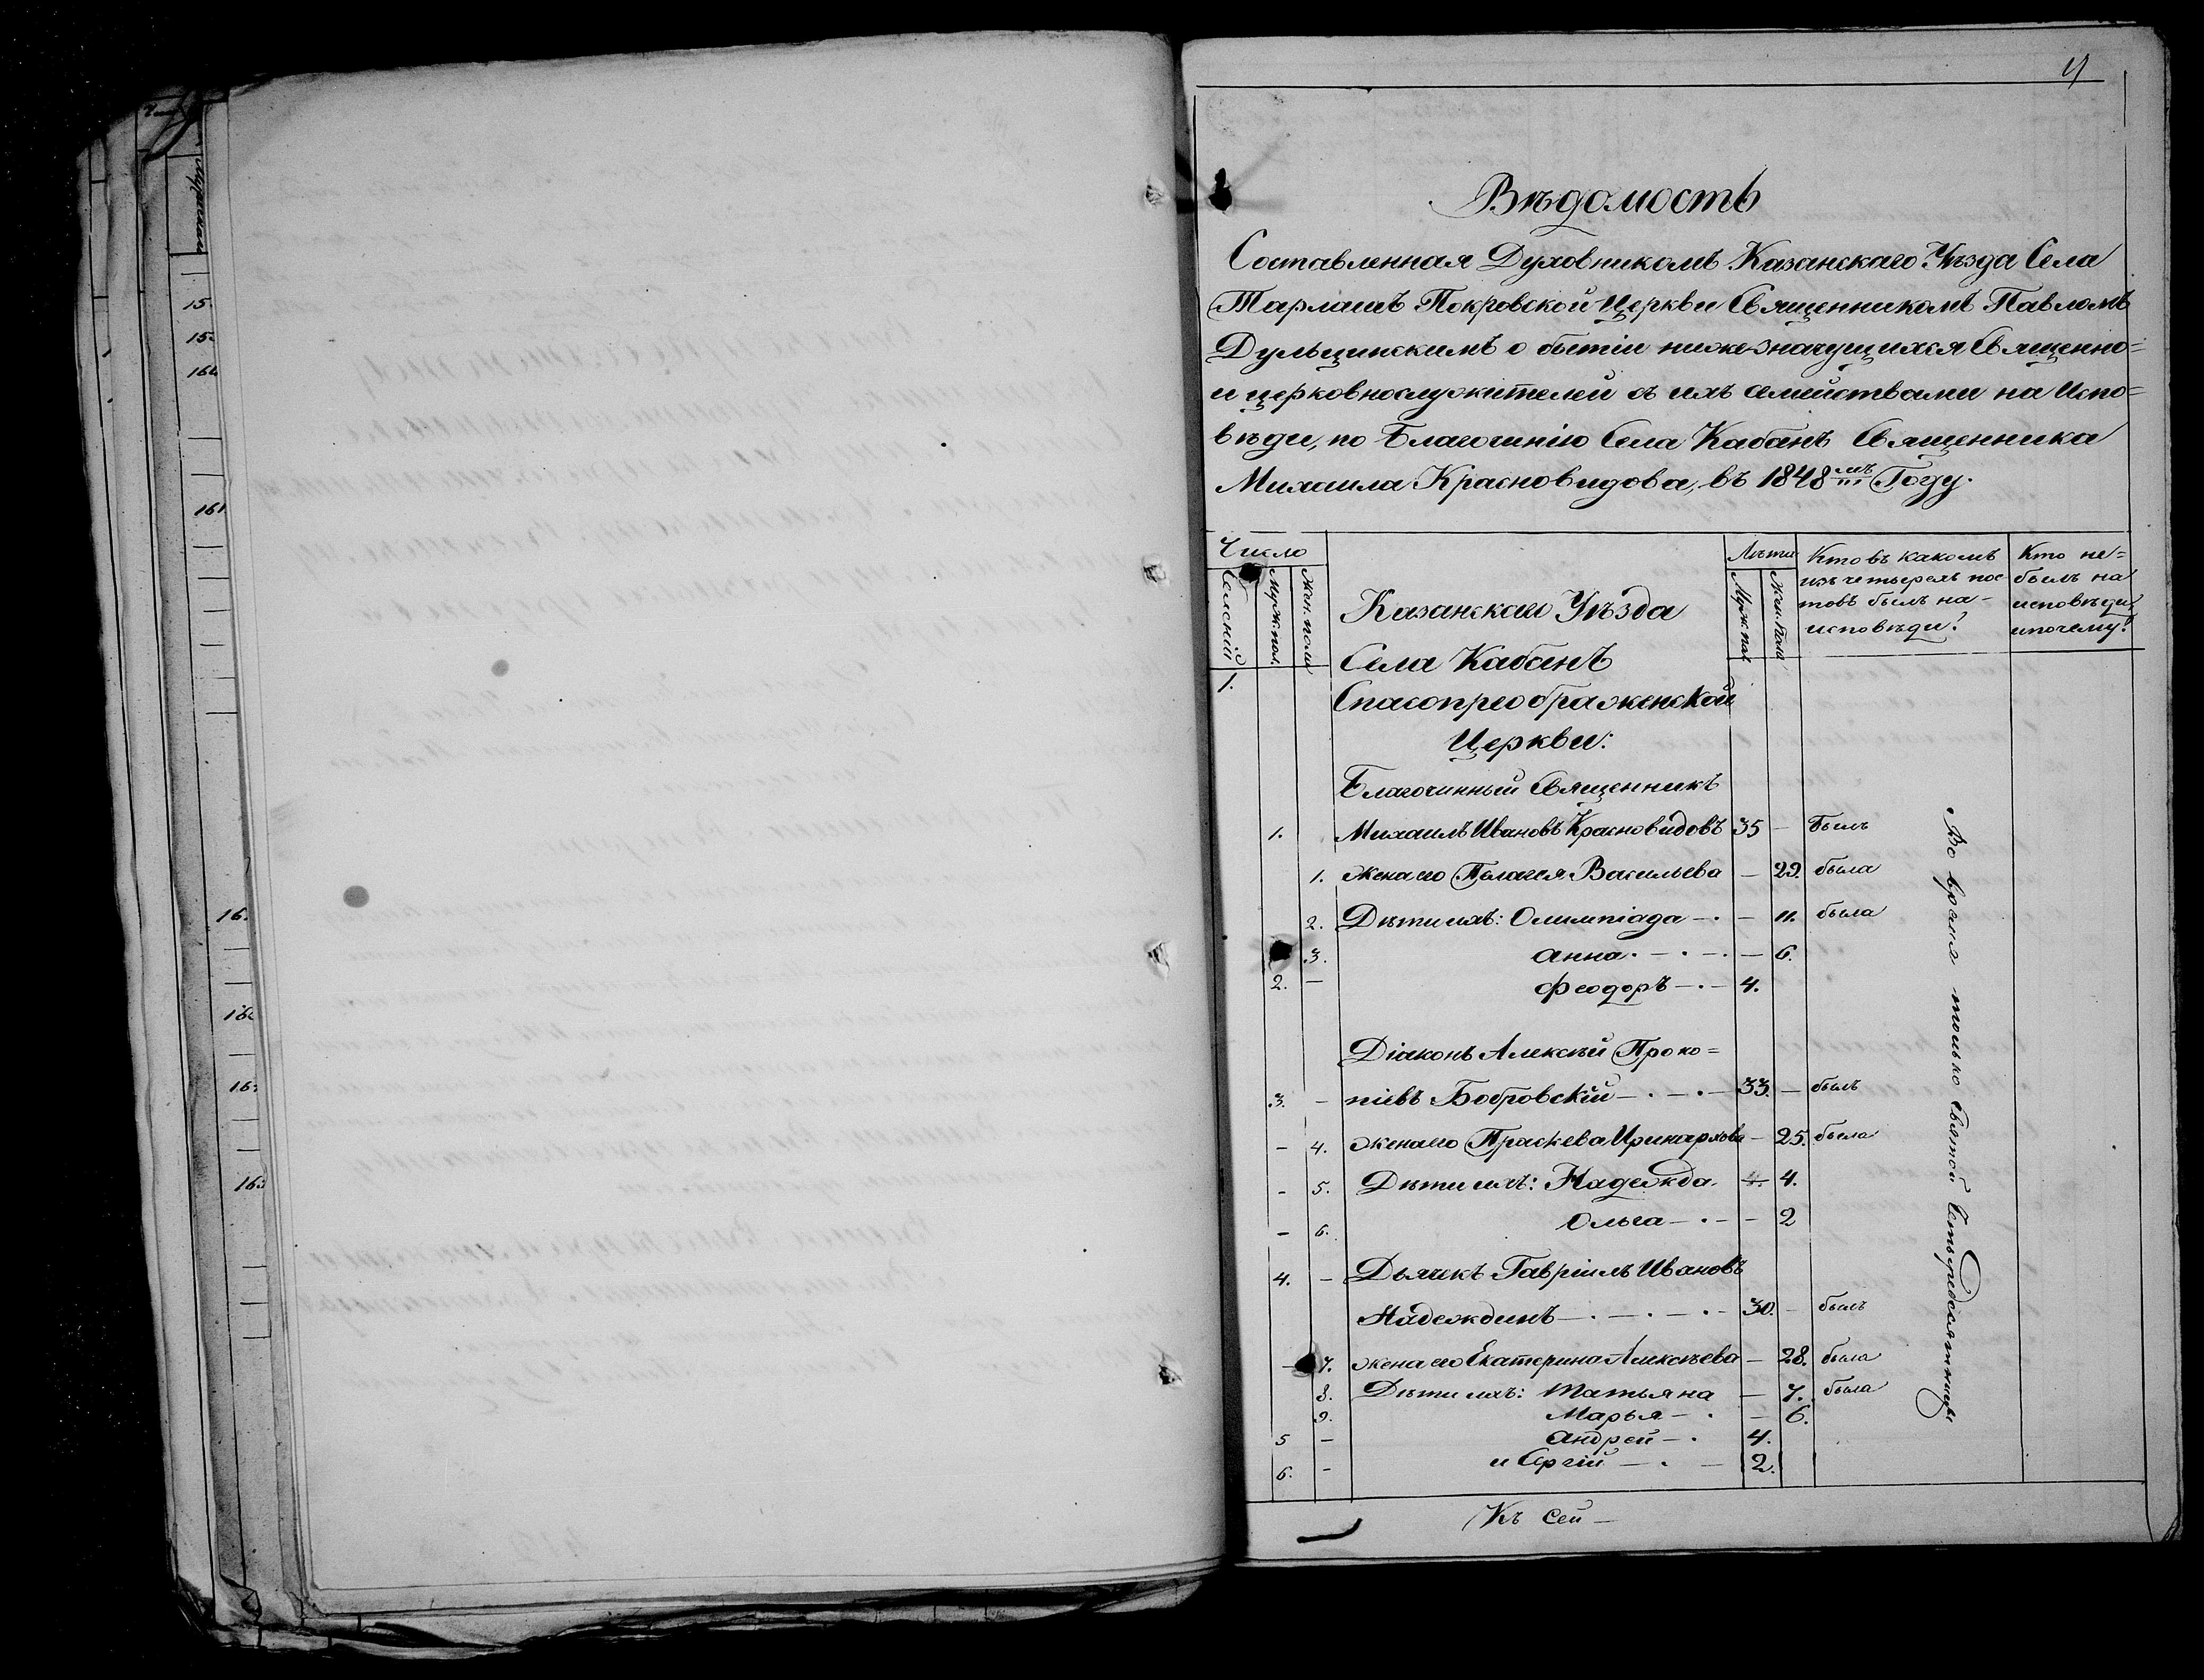 Вѣдомость
Составленная Духовникомъ Казанскаго Уѣзда Села
Тарлашъ Покровской Церкви Священникомъ Павломъ
Дульцинскимъ о бытіи нижезначущихся Священно=
и церковнослужителей съ ихъ семействами на Испо=
вѣди, по Благочинію Села Кабанъ Священника
Михаила Красновидова, въ 1848мъ Году.
Число
Муж. пол.
Жен. пола
Казанскаго Уѣзда
Лѣта
Муж. пол.
Жен. Пола
Кто въ какомъ
изъ четырехъ пос-
товъ былъ на-
исповѣди?
Кто не=
былъ на
исповѣди,
и почему?
1.
Села Кабанъ
Спасопреображенской
Церкви:
Благочинный Священникъ
1. Михаилъ Ивановъ Красновидовъ 35 — Былъ
1. Жена его Пелагея Васильева — 29. была
2. Дѣти ихъ: Олимпіада — . — 11. была
3. Анна . — . — . — 6.
2. — Феодоръ — . — 4.
Діаконъ Алексѣй Проко=
3. — піевъ Бобровскій — . — . — 33. — былъ
— 4. Жена его Праскева Иринархова — 25. была
— 5. Дѣти ихъ: Надежда. 4. 4.
— 6. Ольга — . — — 2
4. — Дьячекъ Гавріилъ Ивановъ
Надеждинъ — . — . — 30. — былъ
— 7. Жена его Екатерина Алексѣева — 28. была
8. Дѣти ихъ: Татьяна — 7. была
9. Марья — . — 6.
5 — Андрей — . 4.
6. — и Сергій — . — 2.
Во время только Святой Четыредесятницы
Къ сей —